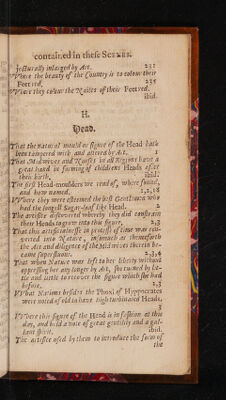 contained in these SCENES.
jecturally inlarged by Art. 231
Where the beauty of the Country is to colour their
Feet red. 235
Where they colour the Nailes of their Feet red.
ibid.
H.
Head.
That the natural mould or figure of the Head hath
been tampered with and altered by Art. 1
That Midwives and Nurses in all Regions have a
great hand in forming of childrens Heads after
their birth. ibid.
The first Head-moulders we read of, where found,
and how named. 1,2,18
Where they were esteemed the best Gentlemen who
had the longest Sugar-loaf like Head.
The artifice discovered whereby they did constrain
their Heads to grow into this figure, 2,3
That this artificialnesse in processe of time was con-
verted into Nature, insomuch as thenceforth
the Art and diligence of the Midwives therein be-
came superfluous. 2,3,4
That when Nature was left to her liberty without
oppressing her any longer by Art, she turned by lit-
tle and little to recover the figure which she had
before. 1,3
What Nations besides the Phoxi of Hippocrates
were noted of old to have high turbinated Heads.
3
Where this figure of the Head is in fashion at this
day, and held a note of great gentility and a gal-
lant spirit. ibid.
The artifice used by them to introduce the form of
the